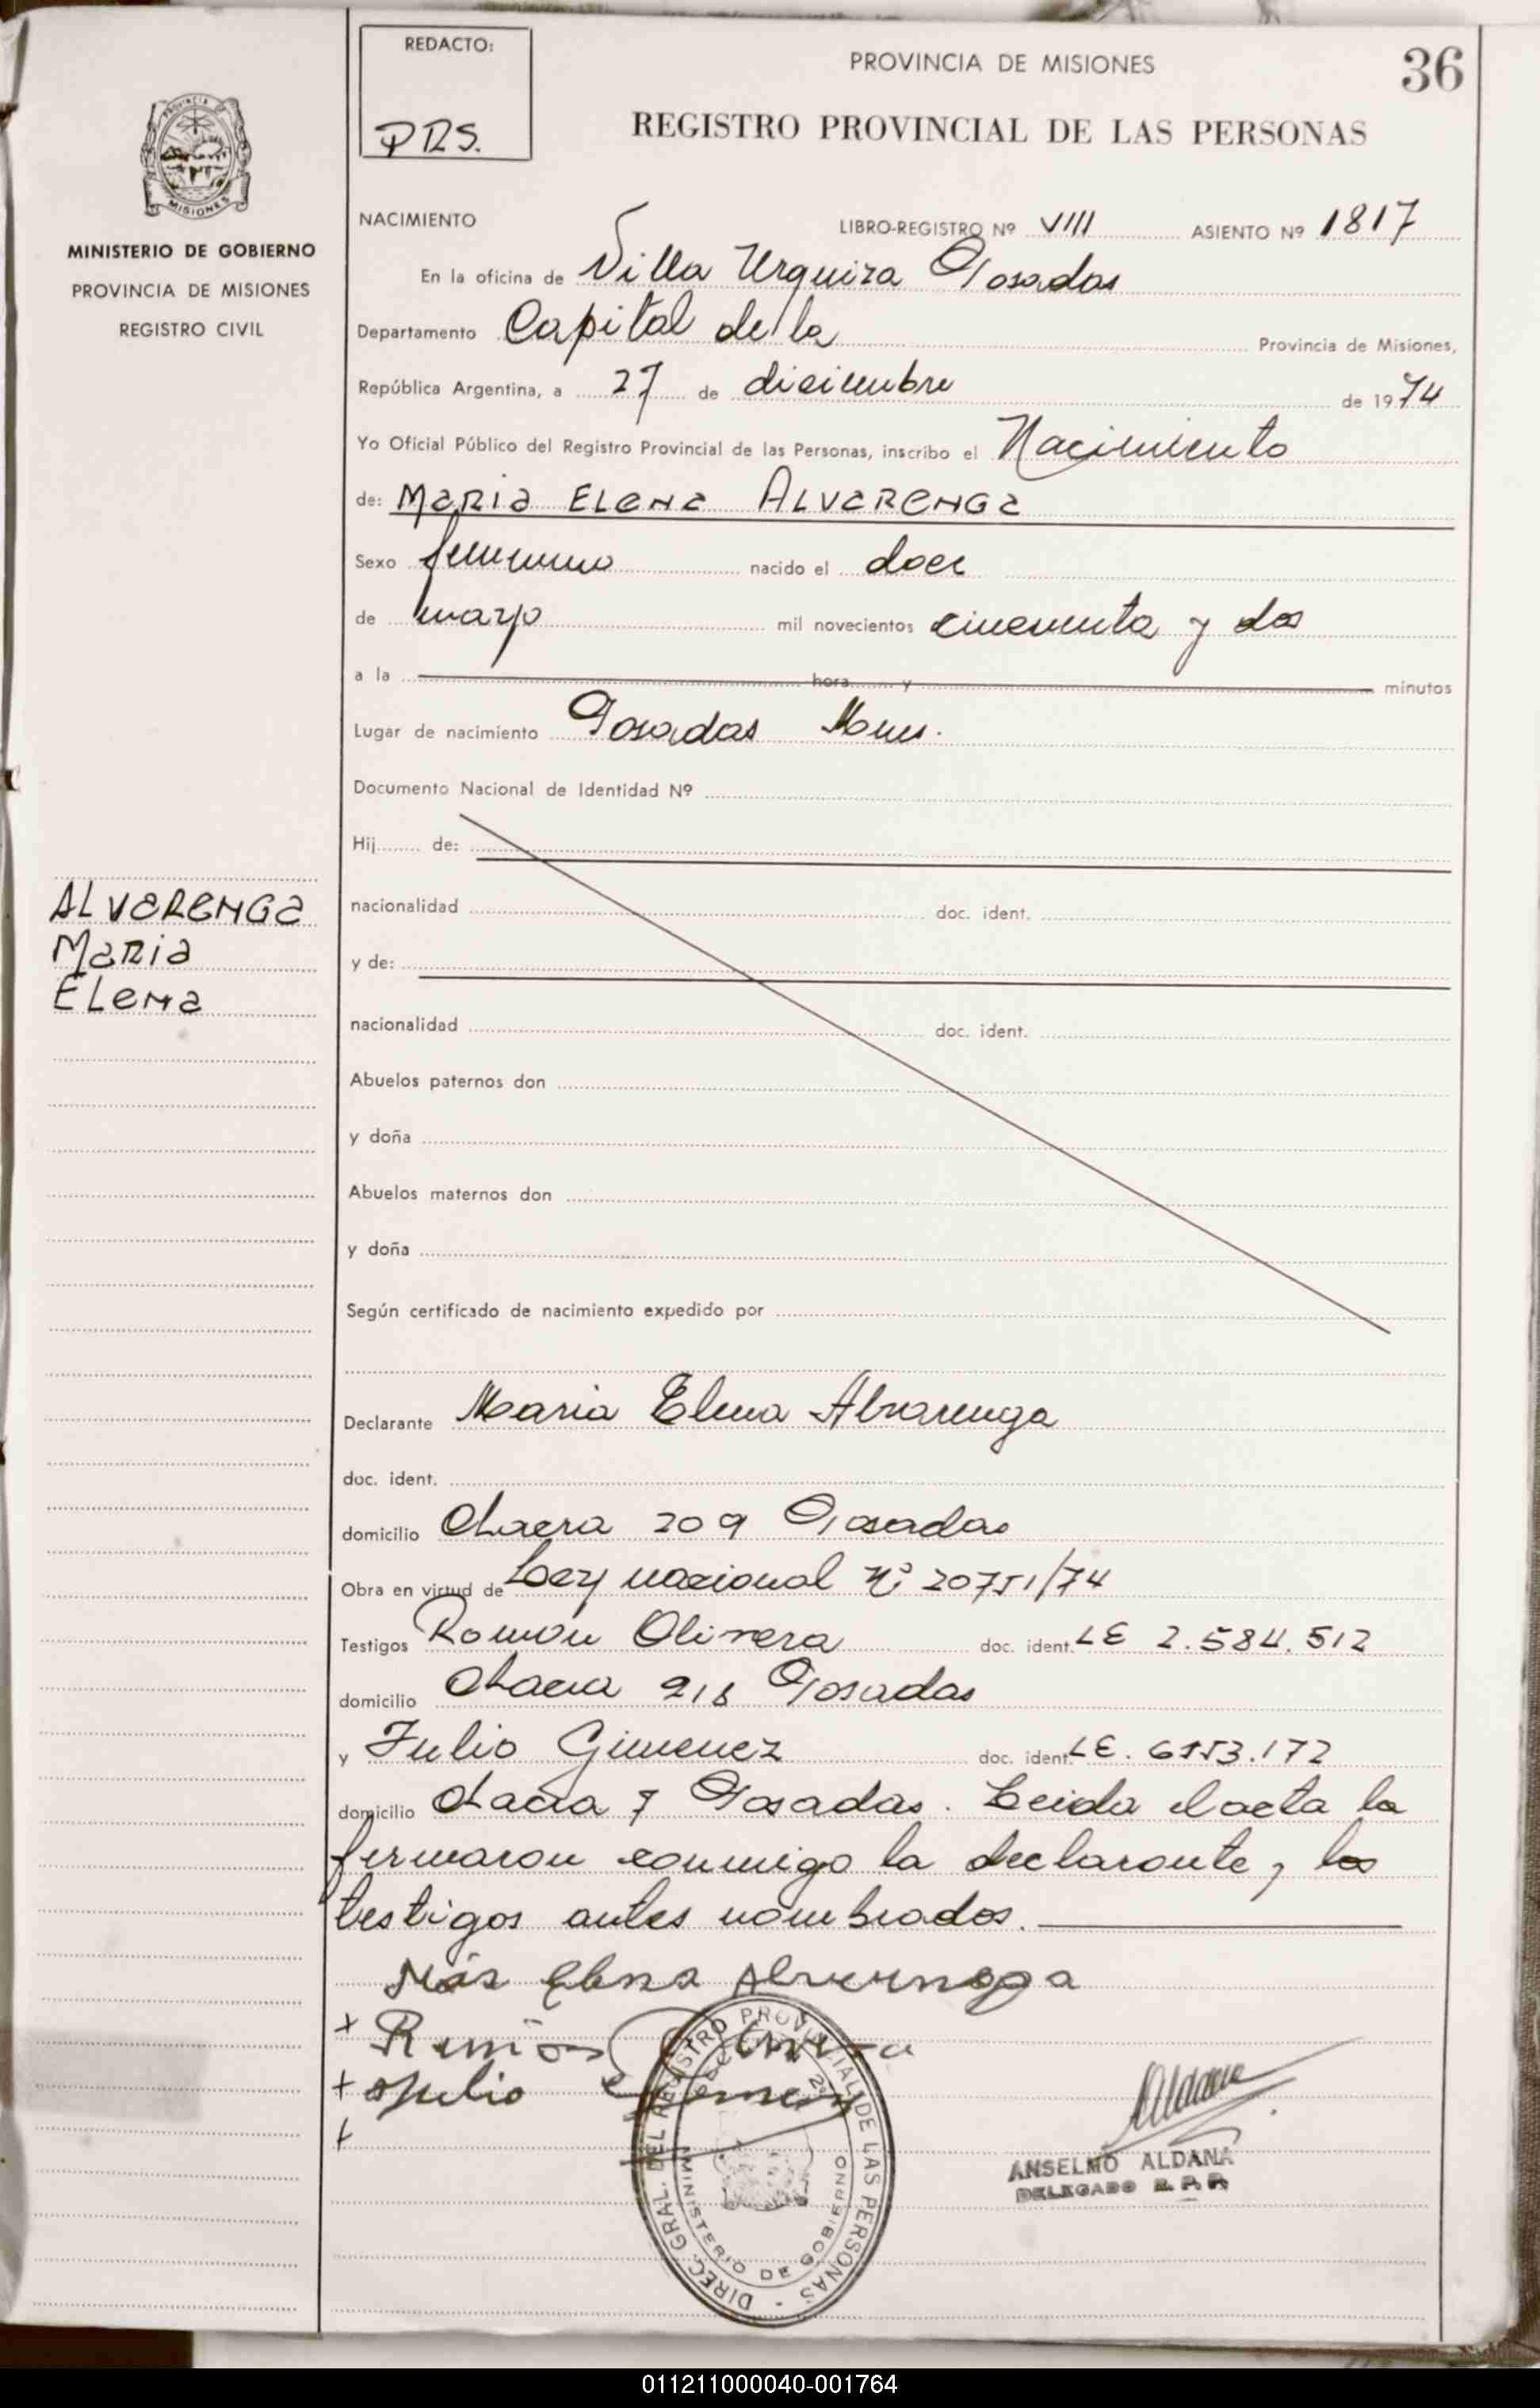 REDACTO:
PRS.
PROVINCIA DE MISIONES
36
REGISTRO PROVINCIAL DE LAS PERSONAS
MISIONES
MINISTERIO DE GOBIERNO
PROVINCIA DE MISIONES
REGISTRO CIVIL
NACIMIENTO LIBRO-REGISTRO Nº VIII ASIENTO Nº 1817
En la oficina de Villa Urquiza Posadas
Departamento Capital de la Provincia de Misiones,
República Argentina, a 27 de diciembre de 1974
Yo Oficial Público del Registro Provincial de las Personas, inscribo el Nacimiento
de: Maria Elena Alvarenga
Sexo femenino nacido el doce
de mayo mil novecientos cincuenta y dos
a la hora y minutos
Lugar de nacimiento Posadas Mnes.
Documento Nacional de Identidad Nº
Hij de:
ALVARENGA
Maria
Elena
nacionalidad doc. ident.
y de:
nacionalidad doc. ident.
Abuelos paternos don
y doña
Abuelos maternos don
y doña
Según certificado de nacimiento expedido por
Declarante Maria Elena Alvarenga
doc. ident.
domicilio Chacra 209 Posadas
Obra en virtud de Ley nacional Nº 20751/74
Testigos Ramón Olivera doc. ident. LE 2.584.512
domicilio Chacra 218 Posadas
y Julio Gimenez doc. ident. LE.
domicilio Chacra 7 Posadas. Leida el acta la
firmaron conmigo la declarante, los
testigos antes nombrados.
Elena
Julio
DIREC. GRAL. DEL REGISTRO PROVINCIAL DE LAS PERSONAS -
MINISTERIO DE GOBIERNO
Aldana
ANSELMO ALDANA
DELEGADO R. P. P.
011211000040-001764